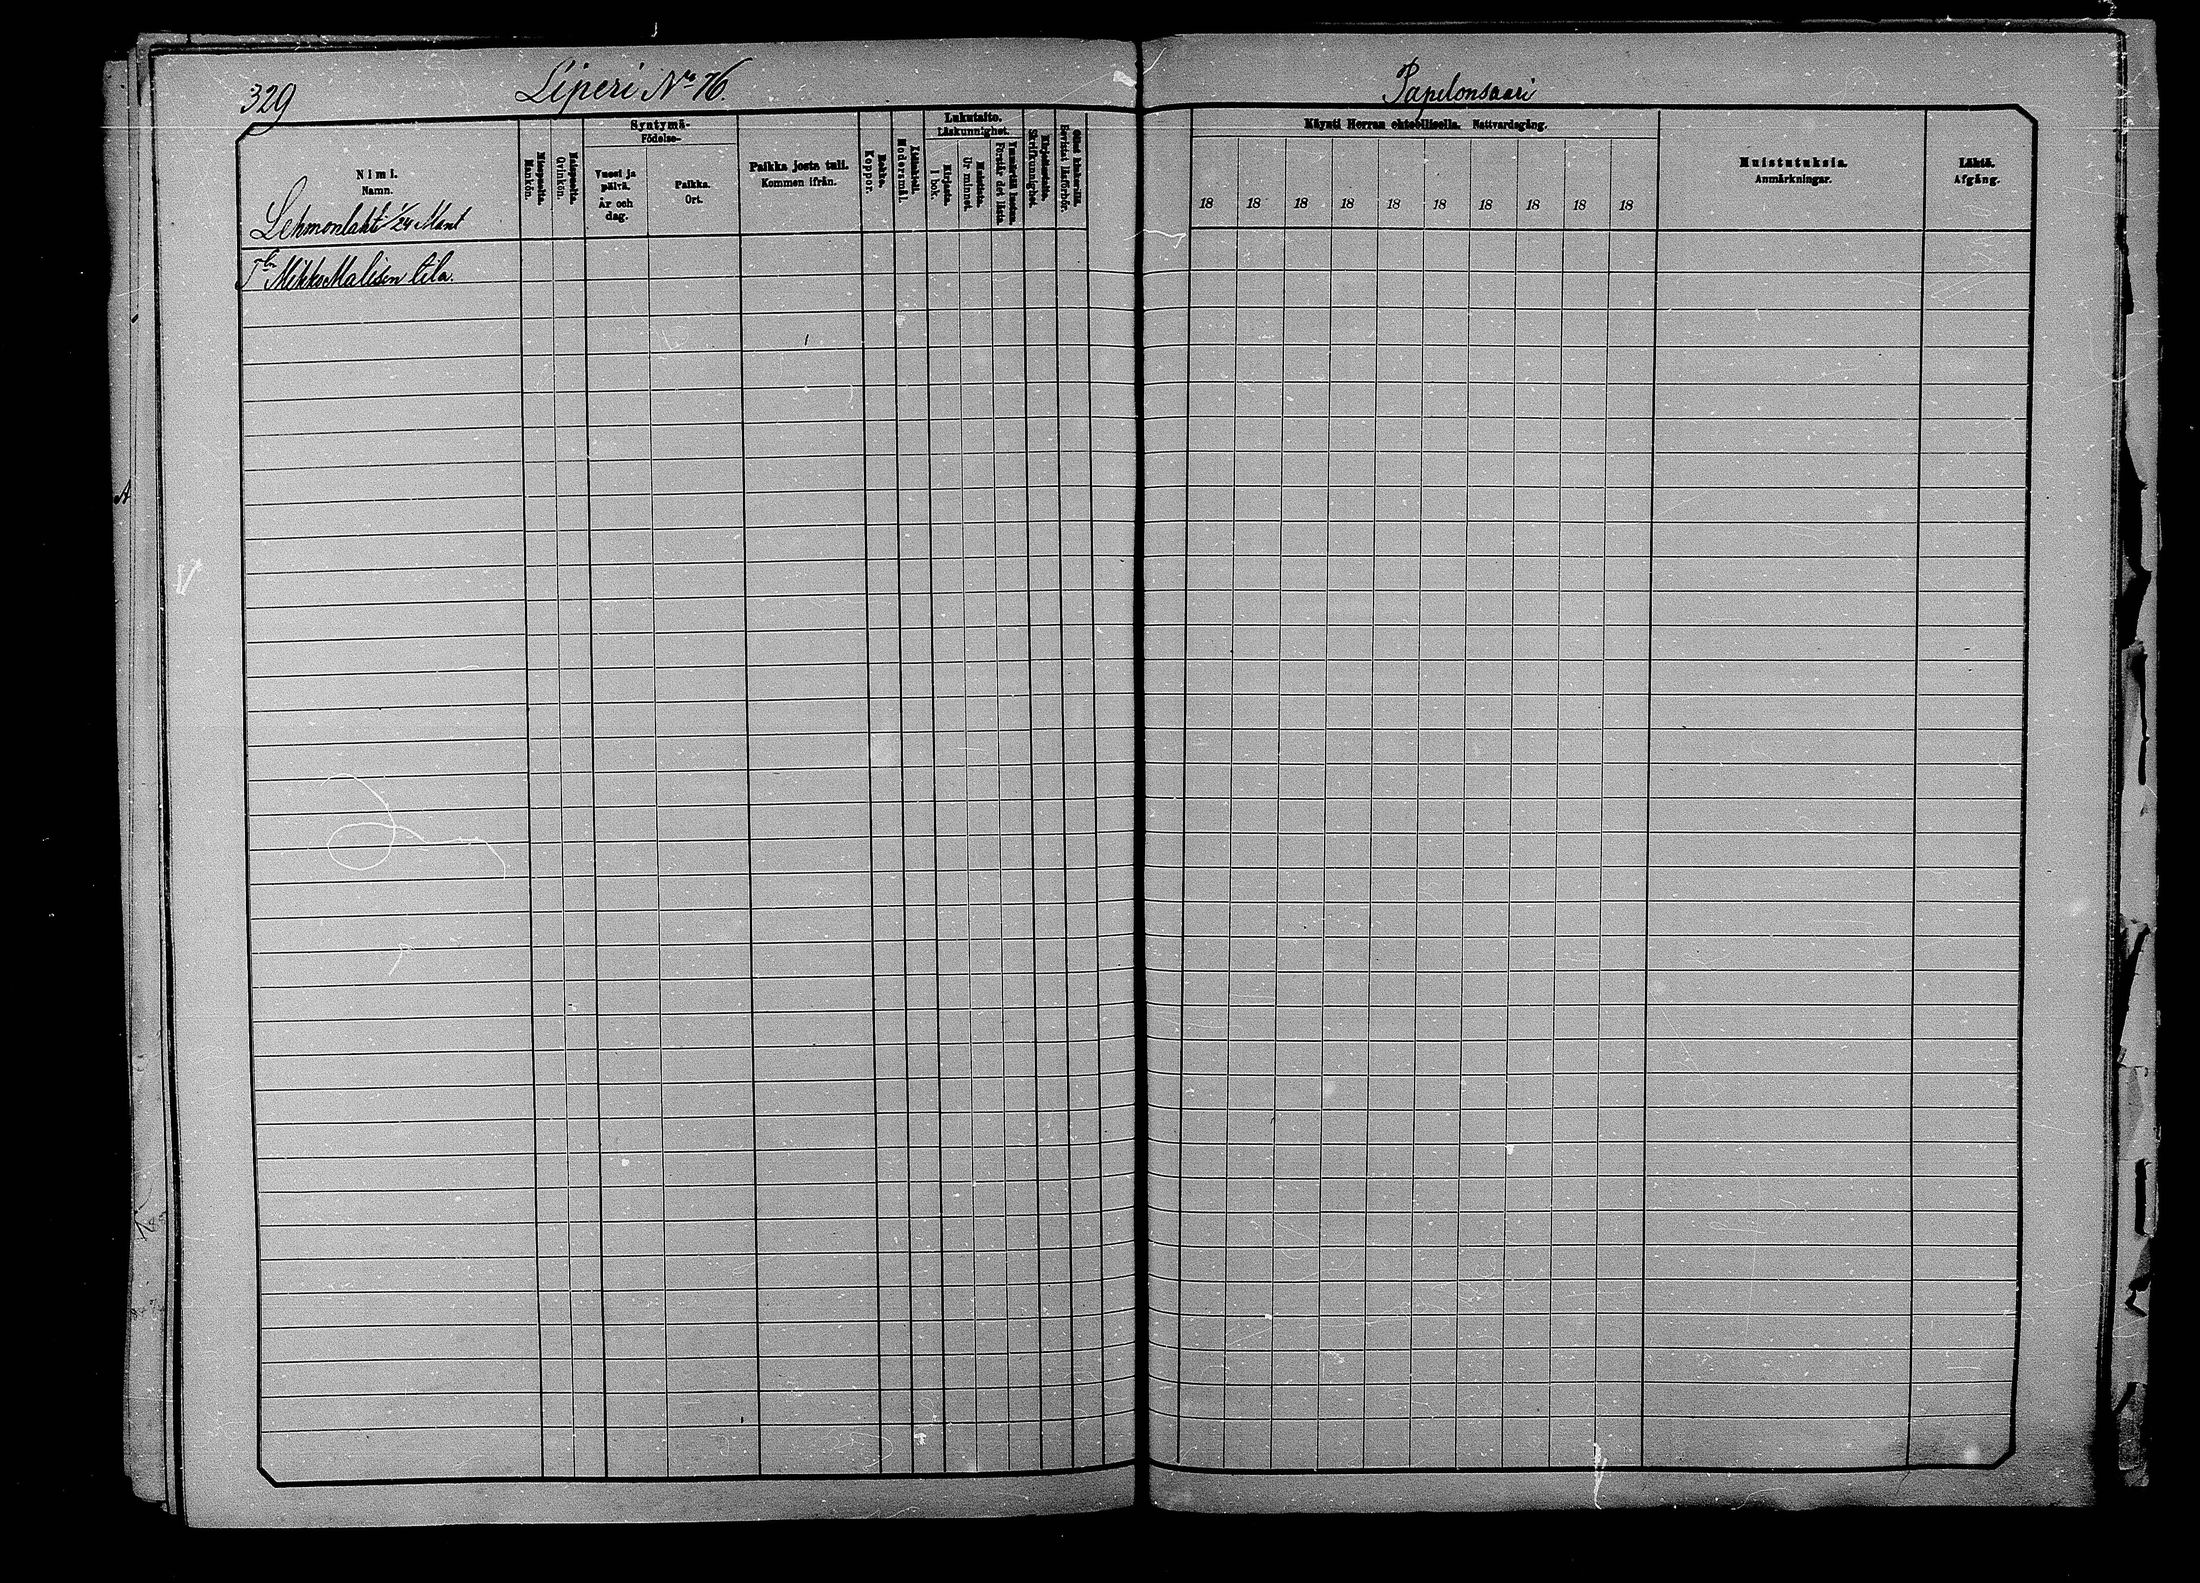 329
Liperi No 76.
Papelonsaari
Nimi.
Namn.
Miespuolia.
Mankön.
Naispuolia.
Qvinkön.
Syntymä-
Födelse-
Vuosi ja päivä.
År och dag.
Paikka.
Ort.
Paikka josta tuli.
Kommen ifrån.
Rokko.
Koppor.
Modersmål.
Lukutaito.
Läskunnighet.
Kirjasta.
I bok.
Muistista.
Ur minnet.
Ymmärtää luetun.
Förstår det lästa.
Kirjoitustaito.
Skrifkunnighet.
Bevistat läsförhör.
Käynti Herran ehtoollisella. Nattvardsgång.
18 18 18 18 18 18 18 18 18 18
Muistutuksia.
Anmärkningar.
Lähtö.
Afgång.
Lehmonlahti 1/24 Mant
Tln Mikko Malisen tila.